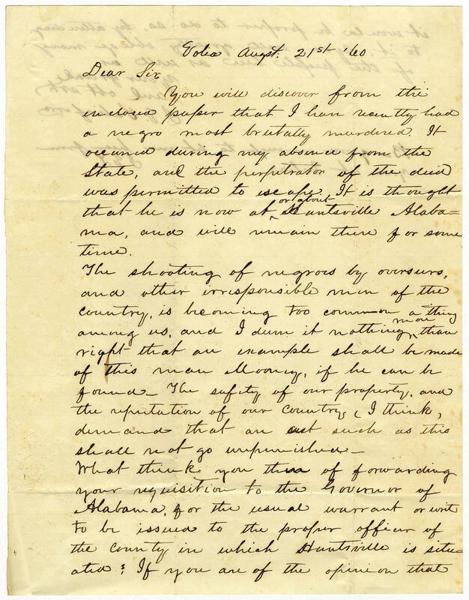 Tolea Augst. 21st '60
Dear Sir
You will discover from the
inclosed paper that I have recently had
a negro most brutally murdered. It
occured during my absence from the
State, and the perpetrator of the deed
was permitted to escape. It is thought
that he is now at or about Huntsville Alaba-
ma, and will remain there for some
time.
The shooting of negroes by overseers,
and other irresponsible men of the
country, is becoming too common a thing
among us, and I deem it nothing more than
right that an example shall be made
of this man Mooney, if he can be
found - The safety of our property, and
the reputation of our country, I think,
demand that an act such as this
shall not go unpunished -
What think you then of forwarding
your requisition to the Governor of
Alabama, for the usual warrant or writ
to be issued to the proper officer of
the county in which Huntsville is situ-
ated? If you are of the opinion that